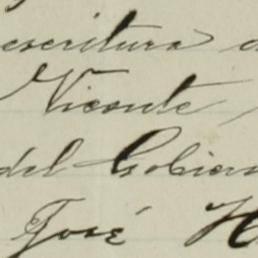 escritura
Vicente
del Gobier
José H